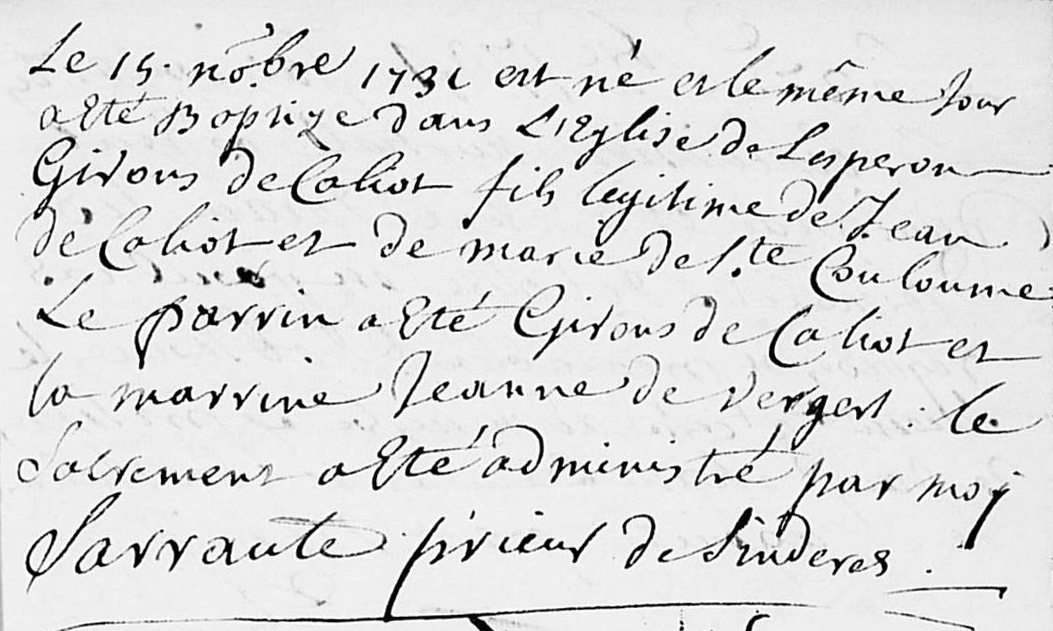 Le 15. nõbre 1731 est né et le même Jour
a été Baptize dans L'Eglise de Lesperon
Girons de Cahot fils legitime de Jean
de Cahot et de marie de S.te Couloume
Le parrin a été Girons de Cahot et
la marrine Jeanne de Vergert. le
Sacrement a été administré par moy
Sarraute prieur de Sinderes.